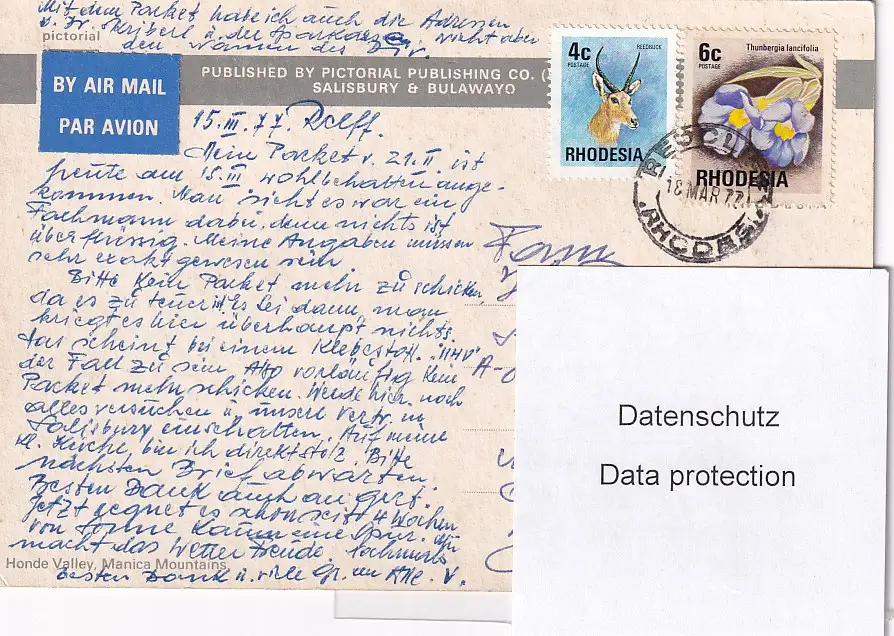 Mit dem Packet habe ich auch die Adressen
v. Dr. u. der nicht aber
den namen des
pictorial
BY AIR MAIL
PAR AVION
PUBLISHED BY PICTORIAL PUBLISHING CO. (
SALISBURY & BULAWAYO
4c
POSTAGE
REEDBUCK
RHODESIA
6c
POSTAGE
Thunbergia lancifolia
RHODESIA
18 MAR 77
RHODESIA
15.III.77.
Mein Packet v. 21.II. ist
heute am 15.III wohlbehalten ange-
kommen. Man sieht es war ein
Fachmann dabei, denn nichts ist
überflüssig. Meine Angaben müssen
sehr exakt gewesen sein.
Bitte kein Packet mehr zu schicken,
da es zu teuer ist. Es sei dann, man
kriegt es hier überhaupt nichts.
Das scheint bei einem Klebestoff "UHU"
der Fall zu sein. Also vorläufig kein
Packet mehr schicken. Werde hier noch
alles versuchen u. unsere Vertr. in
Salisbury einschalten. Auf meine
kl. Küche bin ich direkt stolz. Bitte
nächsten Brief abwarten.
Besten Dank auch an Gerf.
Jetzt regnet es schon seit 4 Wochen
von Sonne kaum eine Spur.
macht das Wetter Freude. Nochmals
besten Dank u. viele Gr. an Alle. V.
Fam
A-
Honde Valley, Manica Mountains.
Datenschutz
Data protection